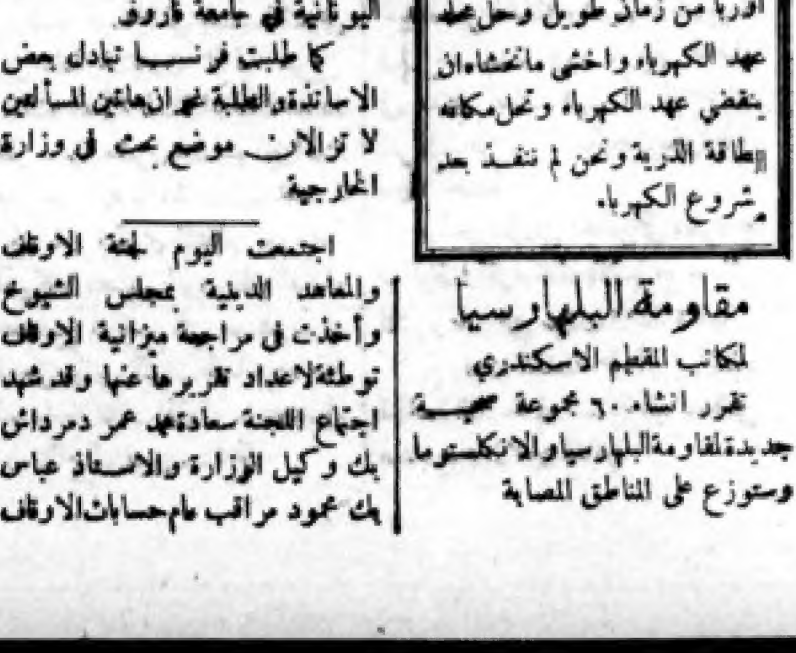 أوربا من زمان طويل وحل محله
عهد الكهرباء واخشى ما نخشاه ان
ينقضي عهد الكهرباء وتحل مكانه
الطاقة الذرية ونحن لم ننفـذ بعد
مشروع الكهرباء
مقاومة البلهارسيا
لمكاتب المقطم الاسكندري
تقرر انشاء ٦٠ مجموعة صحيــة
جديدة لمقاومة البلهارسيا والانكلستوما
وستوزع على المناطق المصابة
اليونانية في جامعة فاروق
كما طلبت فرنسـا تبادل بعض
الاساتذة والطلبة غير ان هاتين المسألتين
لا تزالان موضع بحث في وزارة
الخارجية
اجتمعت اليوم لجنة الاوقاف
والمعاهد الدينية بمجلس الشيوخ
وأخذت في مراجعة ميزانية الاوقاف
توطئة لاعداد تقريرها عنها وقد شهد
اجتماع اللجنة سعادة عمر دمرداش
بك وكيل الوزارة والاستاذ عباس
بك محمود مراقب عام حسابات الاوقاف